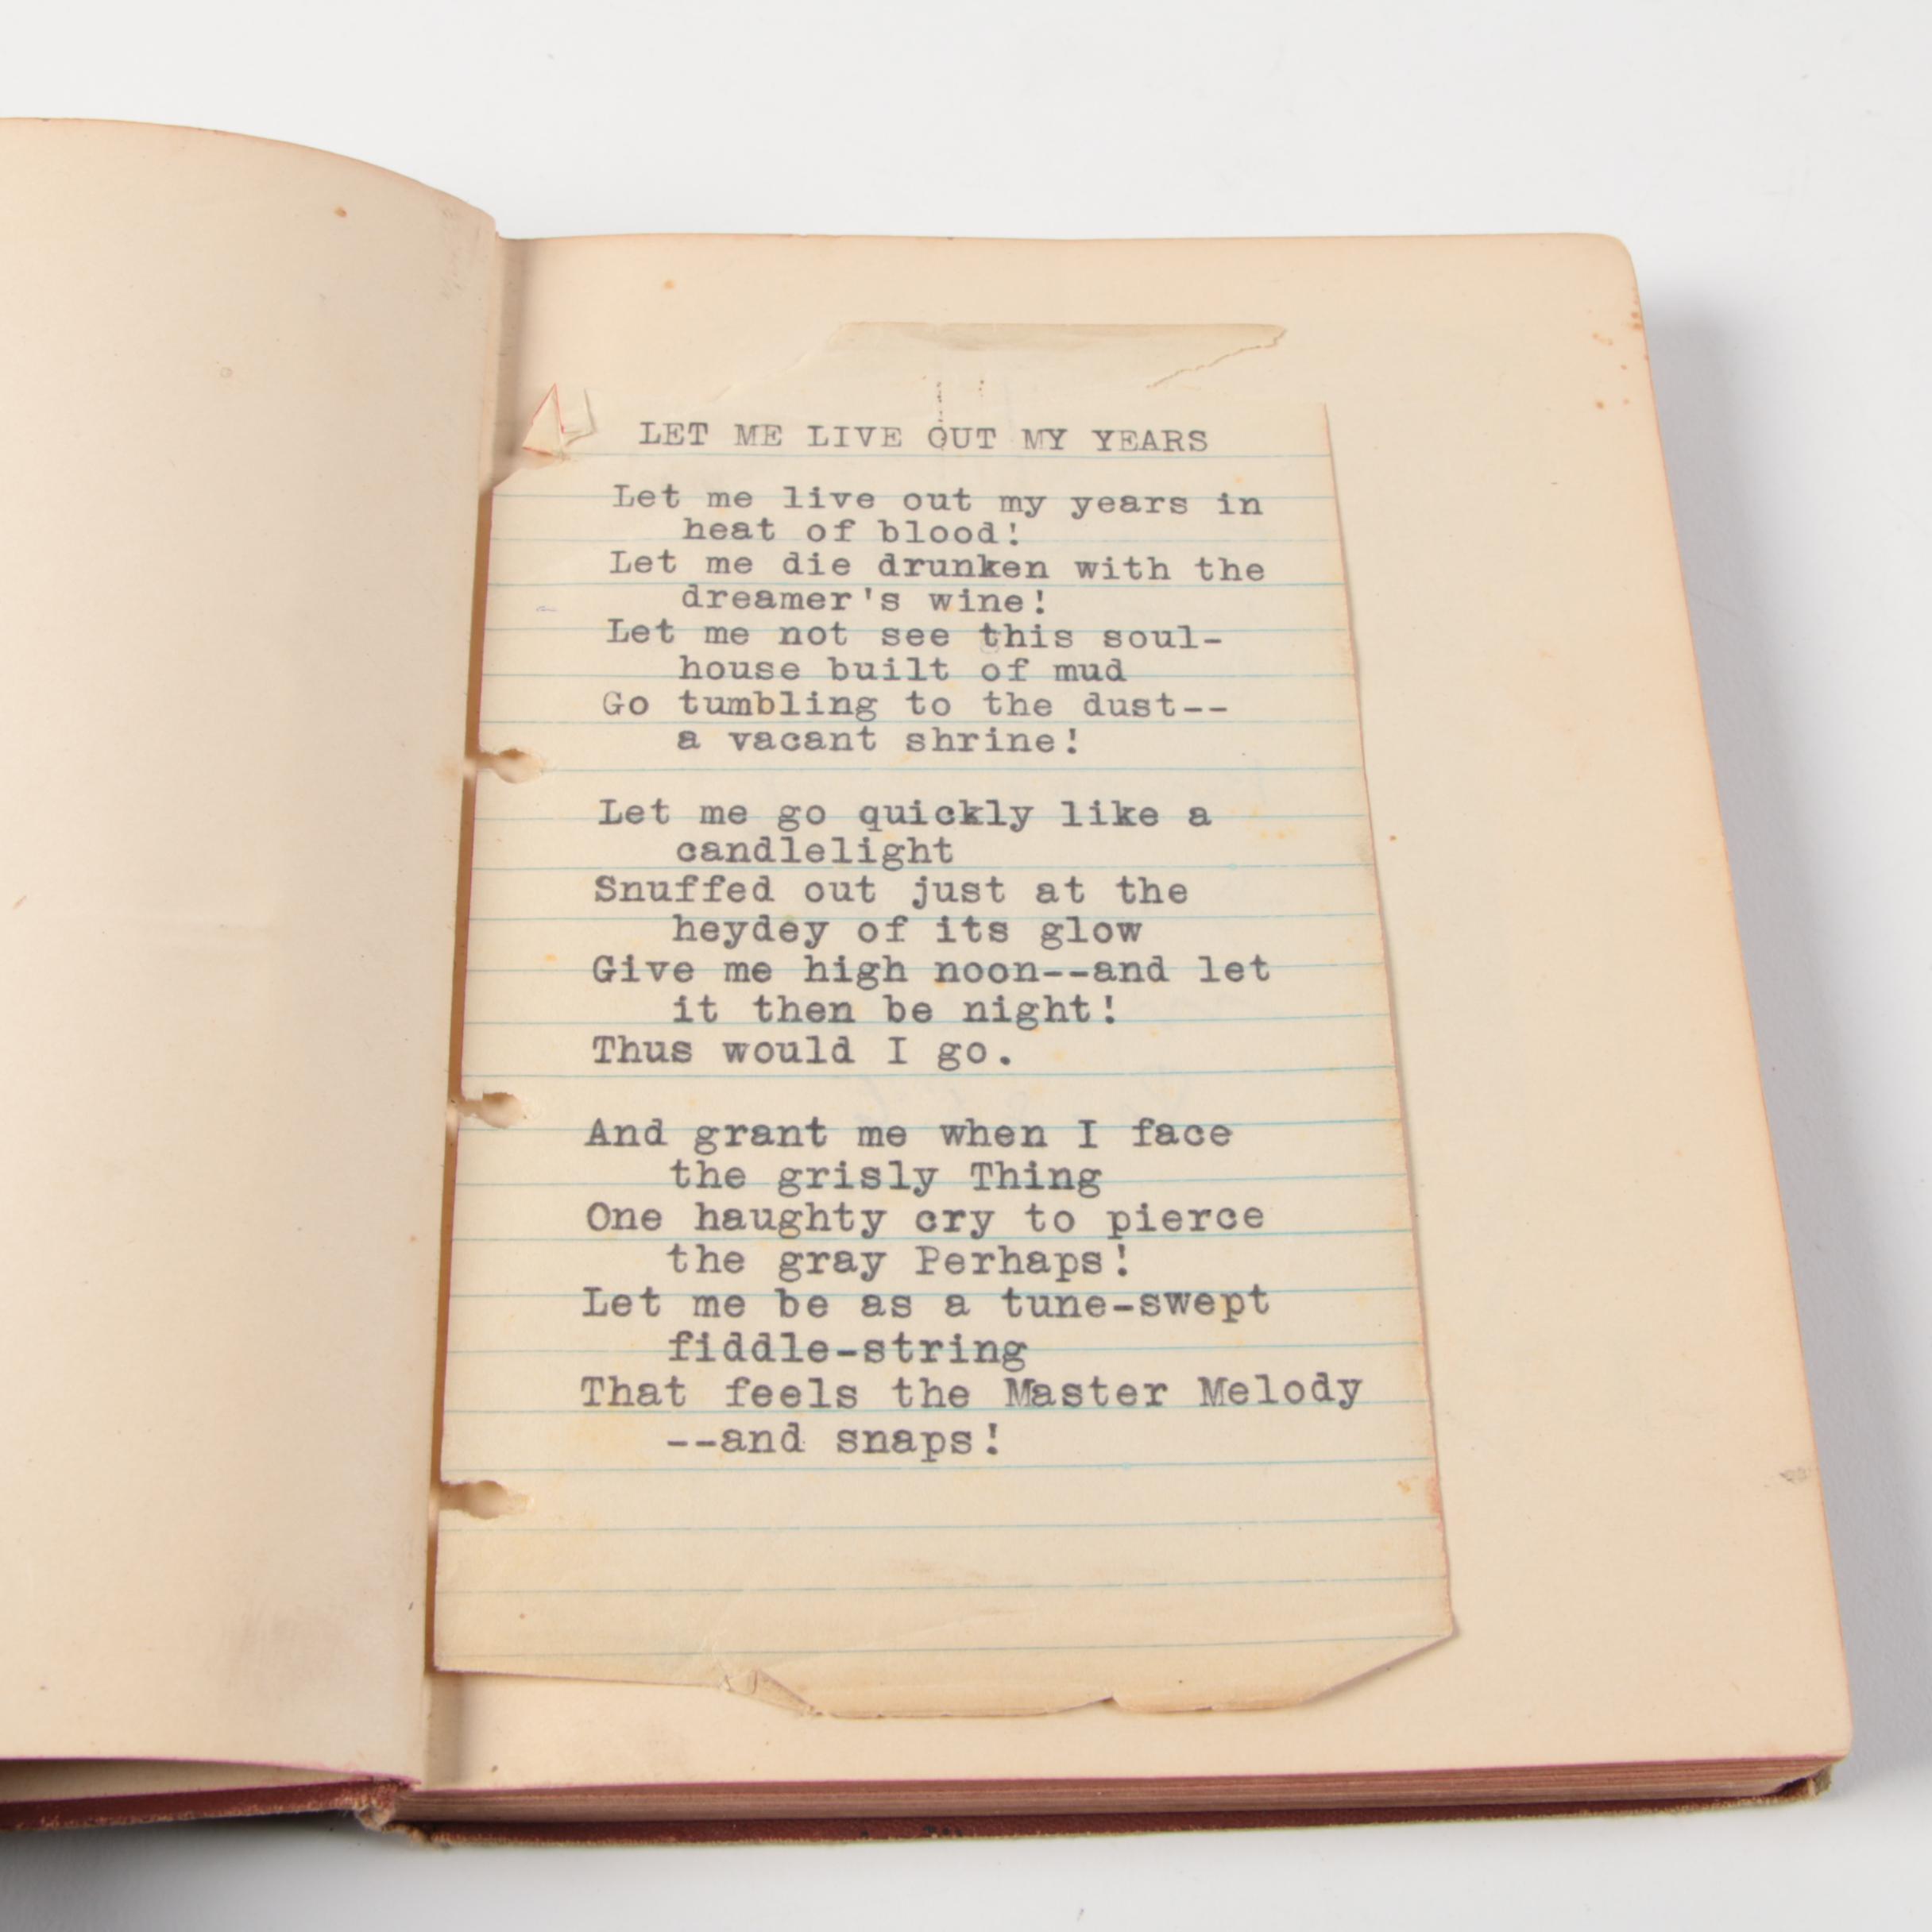 LET ME LIVE OUT MY YEARS
Let me live out my years in
heat of blood!
Let me die drunken with the
dreamer's wine!
Let me not see this soul-
house built of mud
Go tumbling to the dust--
a vacant shrine!
Let me go quickly like a
candlelight
Snuffed out just at the
heydey of its glow
Give me high noon--and let
it then be night!
Thus would I go.
And grant me when I face
the grisly Thing
One haughty cry to pierce
the gray Perhaps!
Let me be as a tune-swept
fiddle-string
That feels the Master Melody
--and snaps!